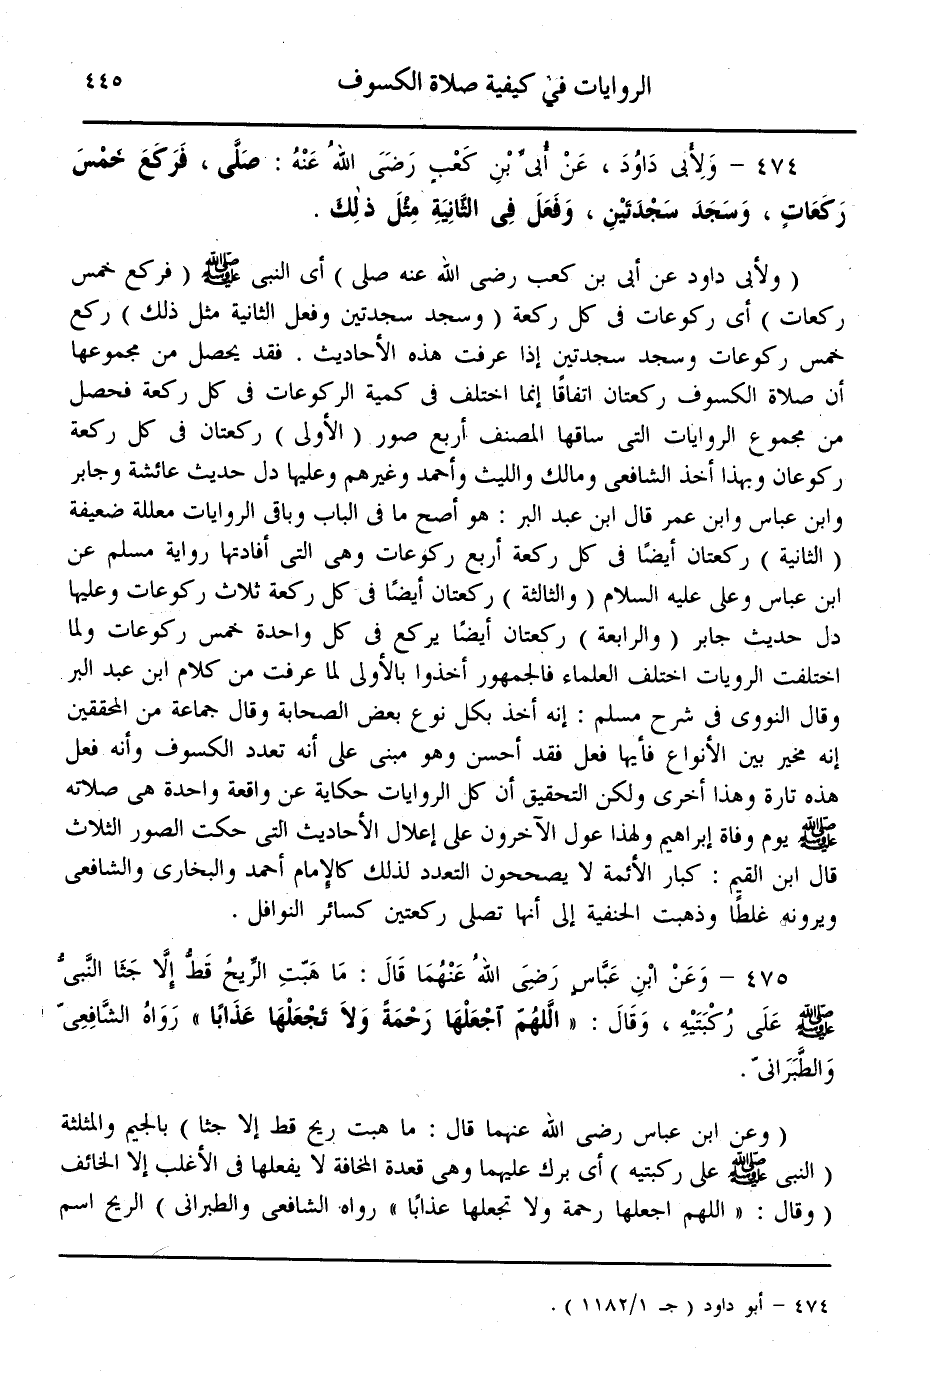 الروايات في كيفية صلاة الكسوف ٤٤٥
٤٧٤ – وَلِأَبِى دَاوُدَ ، عَنْ أُبىِّ بْنِ كَعْبٍ رَضَىَ اللهُ عَنْهُ : صَلَّى ، فَرَكَعَ خَمْسَ
رَكَعَاتٍ ، وَسَجَدَ سَجْدَتَيْنِ ، وَفَعَلَ فِى الثَّانِيَةِ مِثْلَ ذٰلِكَ .
( ولأبى داود عن أبى بن كعب رضى الله عنه صلى ) أى النبى ﷺ ( فركع خمس
ركعات ) أى ركوعات فى كل ركعة ( وسجد سجدتين وفعل الثانية مثل ذلك ) ركع
خمس ركوعات وسجد سجدتين إذا عرفت هذه الأحاديث . فقد يحصل من مجموعها
أن صلاة الكسوف ركعتان اتفاقًا إنما اختلف فى كمية الركوعات فى كل ركعة فحصل
من مجموع الروايات التى ساقها المصنف أربع صور ( الأولى ) ركعتان فى كل ركعة
ركوعان وبهذا أخذ الشافعى ومالك والليث وأحمد وغيرهم وعليها دل حديث عائشة وجابر
وابن عباس وابن عمر قال ابن عبد البر : هو أصح ما فى الباب وباقى الروايات معللة ضعيفة
( الثانية ) ركعتان أيضًا فى كل ركعة أربع ركوعات وهى التى أفادتها رواية مسلم عن
ابن عباس وعلى عليه السلام ( والثالثة ) ركعتان أيضًا فى كل ركعة ثلاث ركوعات وعليها
دل حديث جابر ( والرابعة ) ركعتان أيضًا يركع فى كل واحدة خمس ركوعات ولما
اختلفت الرويات اختلف العلماء فالجمهور أخذوا بالأولى لما عرفت من كلام ابن عبد البر
وقال النووى فى شرح مسلم : إنه أخذ بكل نوع بعض الصحابة وقال جماعة من المحققين
إنه مخير بين الأنواع فأيها فعل فقد أحسن وهو مبنى على أنه تعدد الكسوف وأنه فعل
هذه تارة وهذا أخرى ولكن التحقيق أن كل الروايات حكاية عن واقعة واحدة هى صلاته
ﷺ يوم وفاة إبراهيم ولهذا عول الآخرون على إعلال الأحاديث التى حكت الصور الثلاث
قال ابن القيم : كبار الأئمة لا يصححون التعدد لذلك كالإمام أحمد والبخارى والشافعى
ويرونه غلطًا وذهبت الحنفية إلى أنها تصلى ركعتين كسائر النوافل .
٤٧٥ – وَعَنْ ابْنِ عَبَّاسٍ رَضِىَ اللهُ عَنْهُمَا قَالَ : مَا هَبَّتِ الرِّيحُ قَطُّ إِلَّا جَثَا النَّبىُّ
ﷺ عَلَى رُكْبَتَيْهِ ، وَقَالَ : « الَّلهُمّ آجْعَلْهَا رَحْمَةً وَلاَ تَجْعَلْهَا عَذَابًا » رَوَاهُ الشَّافِعِىّ
وَالطَّبَرَانىّ .
( وعن ابن عباس رضى الله عنهما قال : ما هبت ريح قط إلا جثا ) بالجيم والمثلثة
( النبى ﷺ على ركبتيه ) أى برك عليهما وهى قعدة المخافة لا يفعلها فى الأغلب إلا الخائف
( وقال : « اللهم اجعلها رحمة ولا تجعلها عذابًا » رواه الشافعى والطبرانى ) الريح اسم
٤٧٤ – أبو داود ( جـ ١/١١٨٢ ) .